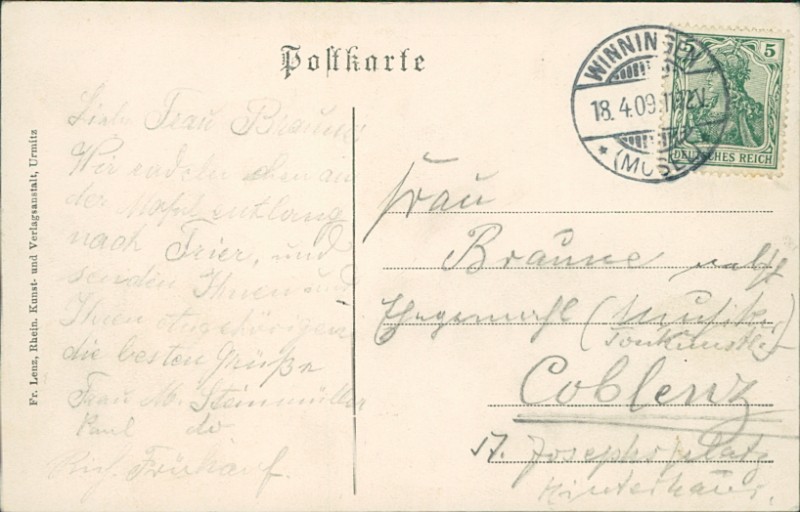 Postkarte
WINNINGEN
18.4.09.11-12V.
* (MOSEL)
5
DEUTSCHES REICH
Fr. Lenz, Rhein. Kunst- und Verlagsanstalt, Urmitz
Liebe Frau Braune
Wir radeln eben an
der Mosel entlang
nach Trier, und
senden Ihnen und
Ihren Angehörigen
die besten Grüße
Frau M. Steinmüller
Paul do
Frau
Braune nebst
Ehegemahl (Musiker
Tonkünstler
Coblenz
Josephsplatz
Hinterhaus.